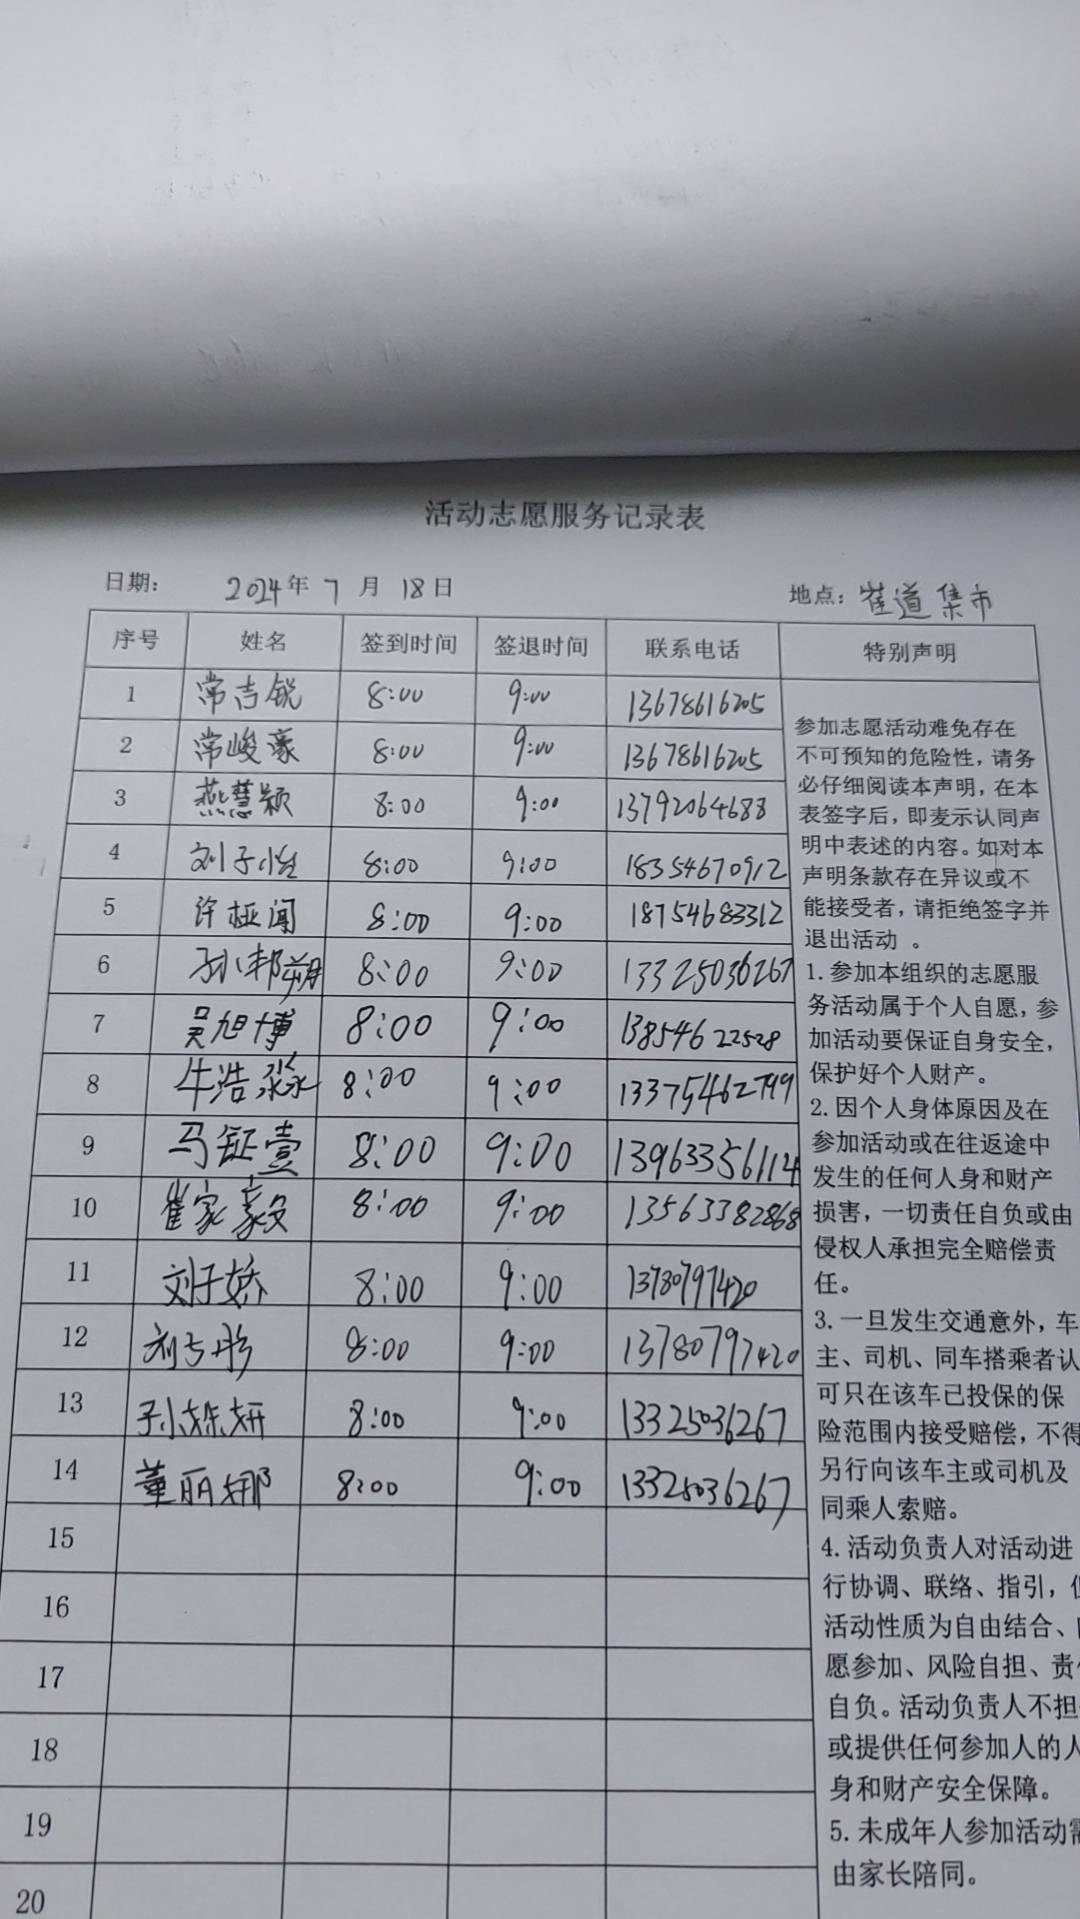 活动志愿服务记录表
日期: 2024年 7 月 18日 地点: 崔道集市
序号 姓名 签到时间 签退时间 联系电话 特别声明
1 常吉锐 8:00 9:00 13678616205
2 常峻豪 8:00 9:00 13678616205
3 燕慧颖 8:00 9:00 13792064688
4 刘子怡 8:00 9:00 18354670912
5 许桠闻 8:00 9:00 18754683312
6 孙邦朔 8:00 9:00 13325036267
7 吴旭博 8:00 9:00 13854622528
8 牛浩淼 8:00 9:00 13375462799
9 马钲壹 8:00 9:00 13963356114
10 崔家毅 8:00 9:00 13563382868
11 刘子娇 8:00 9:00 13780797420
12 刘彦彤 8:00 9:00 13780797420
13 孙姝妍 8:00 9:00 13325036267
14 董丽娜 8:00 9:00 13325036267
15
16
17
18
19
20
参加志愿活动难免存在
不可预知的危险性，请务
必仔细阅读本声明，在本
表签字后，即麦示认同声
明中表述的内容。如对本
声明条款存在异议或不
能接受者，请拒绝签字并
退出活动 。
1.参加本组织的志愿服
务活动属于个人自愿，参
加活动要保证自身安全，
保护好个人财产。
2.因个人身体原因及在
参加活动或在往返途中
发生的任何人身和财产
损害，一切责任自负或由
侵权人承担完全赔偿责
任。
3.一旦发生交通意外，车
主、司机、同车搭乘者认
可只在该车已投保的保
险范围内接受赔偿，不得
另行向该车主或司机及
同乘人索赔。
4.活动负责人对活动进
行协调、联络、指引，但
活动性质为自由结合、
愿参加、风险自担、责
自负。活动负责人不担
或提供任何参加人的人
身和财产安全保障。
5.未成年人参加活动需
由家长陪同。